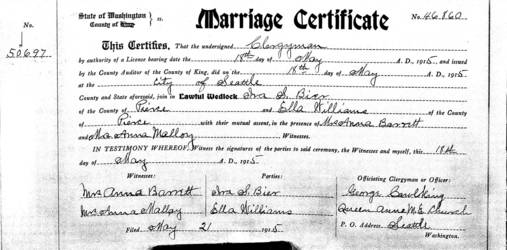 State of Washington
County of King
ss.
Marriage Certificate
No. 46860
No.
50697
This Certifies, That the undersigned Clergyman
by authority of a License bearing date the 18th day of May A. D., 1915 and issued
by the County Auditor of the County of King, did on the 18th day of May A. D., 1915
at the City of Seattle
County and State aforesaid, join in Lawful Wedlock Ira S. Bier
of the County of Pierce and Ella Williams of the County
Pierce with their mutual assent, in the presence of Mrs Anna Barrett
and Mrs. Anna Malloy Witnesses.
IN TESTIMONY WHEREOF, Witness the signatures of the parties to said ceremony, the Witnesses and myself, this 18th
day of May A. D., 1915
Witnesses: Parties: Officiating Clergyman or Officer:
Mrs Anna Barrett Ira S. Bier George
Mrs Anna Malloy Ella Williams Queen Anne M.E. Church
Filed May 21 1915 P. O. Address Seattle
Washington.